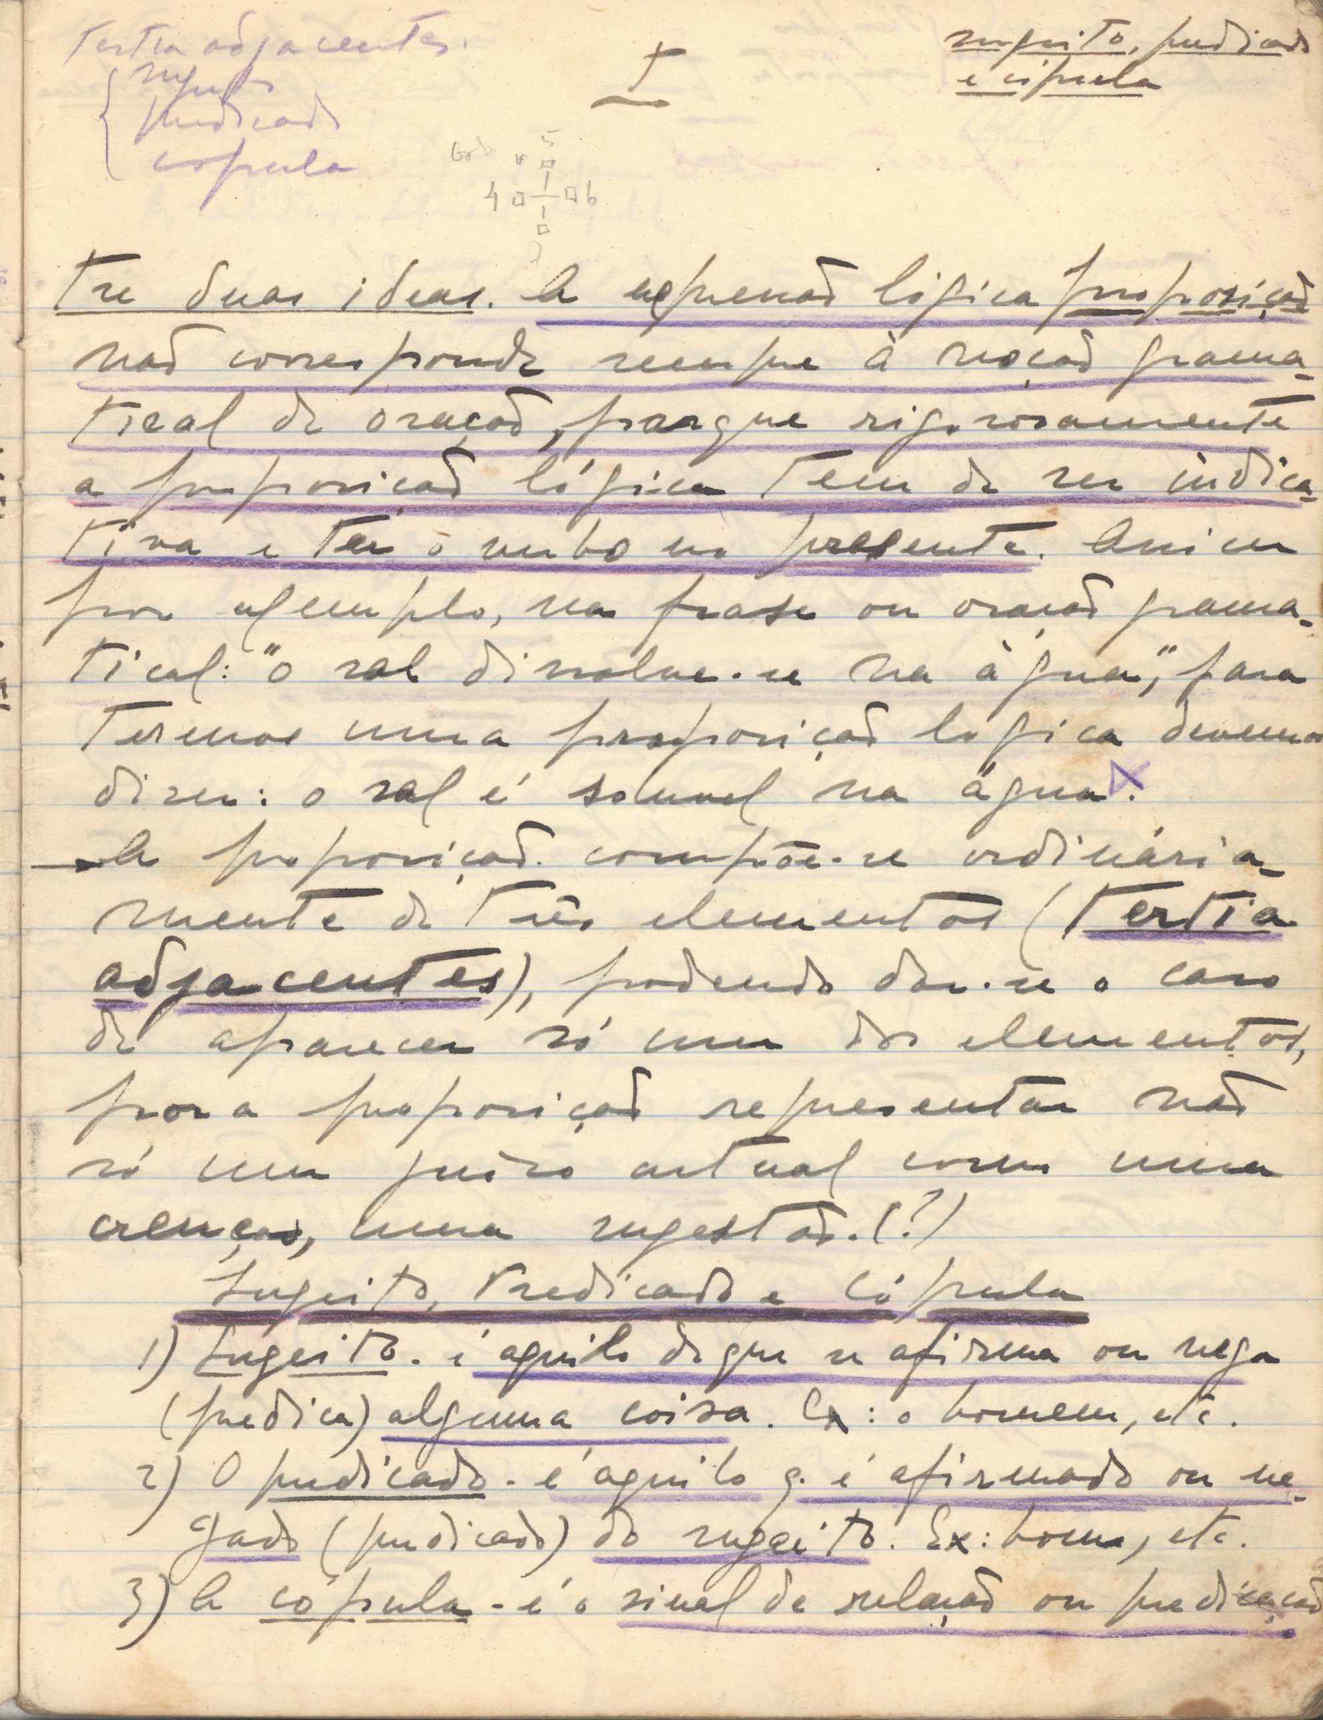 Tertia adjacentes.
sujeito
predicado
copula
sujeito, predicado
e cópula
I
5
4 6
3
tre duas ideas. A expressão lógica proposição
não corresponde sempre à noção grama-
tical de oração, porque rigorosamente
a proposição lógica tem de ser indica-
tiva e ter o verbo no presente. Assim
por exemplo, na frase ou oração grama-
tical: "o sal dissolve-se na àgua", para
termos uma proposição logica devemos
dizer: o sal é soluvel na àgua.
A proposição compõe-se ordinária-
mente de três elementos (tertia
adjacentes), podendo dar-se o caso
de aparecer só um dos elementos,
por a proposição representar não
só um juízo actual como uma
crença, uma sugestão. (?)
Sugeito, Predicado e Cópula
1) Sugeito. é aquilo de que se afirma ou nega
(predica) alguma coisa. Ex: o homem, etc.
2) O predicado - é aquilo q. é afirmado ou ne-
gado (predicado) do sugeito. Ex: homem, etc.
3) A cópula - é o sinal de relação ou predicação